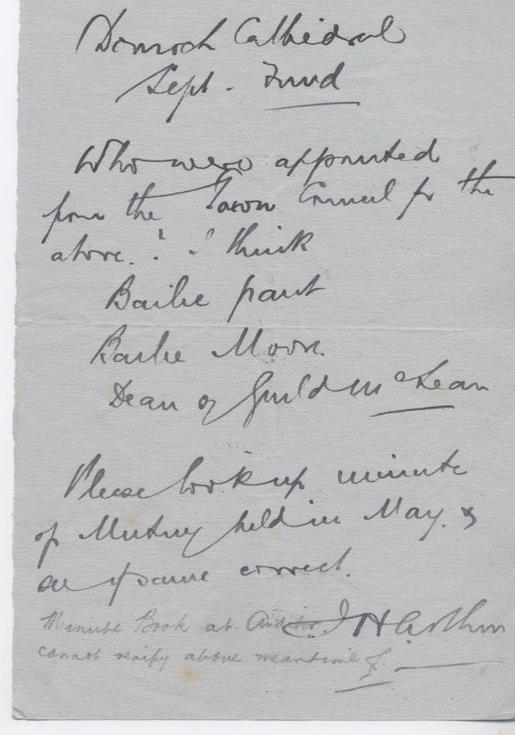 Dornoch Cathedral
Sept. Fund
Who were appointed
from the Town Council for the
above? I think
Bailie Grant
Bailie Moore.
Dean of Guild McLean
Please look up minute
of Meeting held in May &
see if same correct.
Minute Book at
cannot verify above meantime